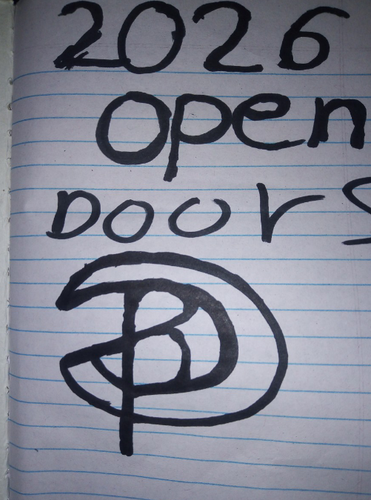 2026
open
Doors